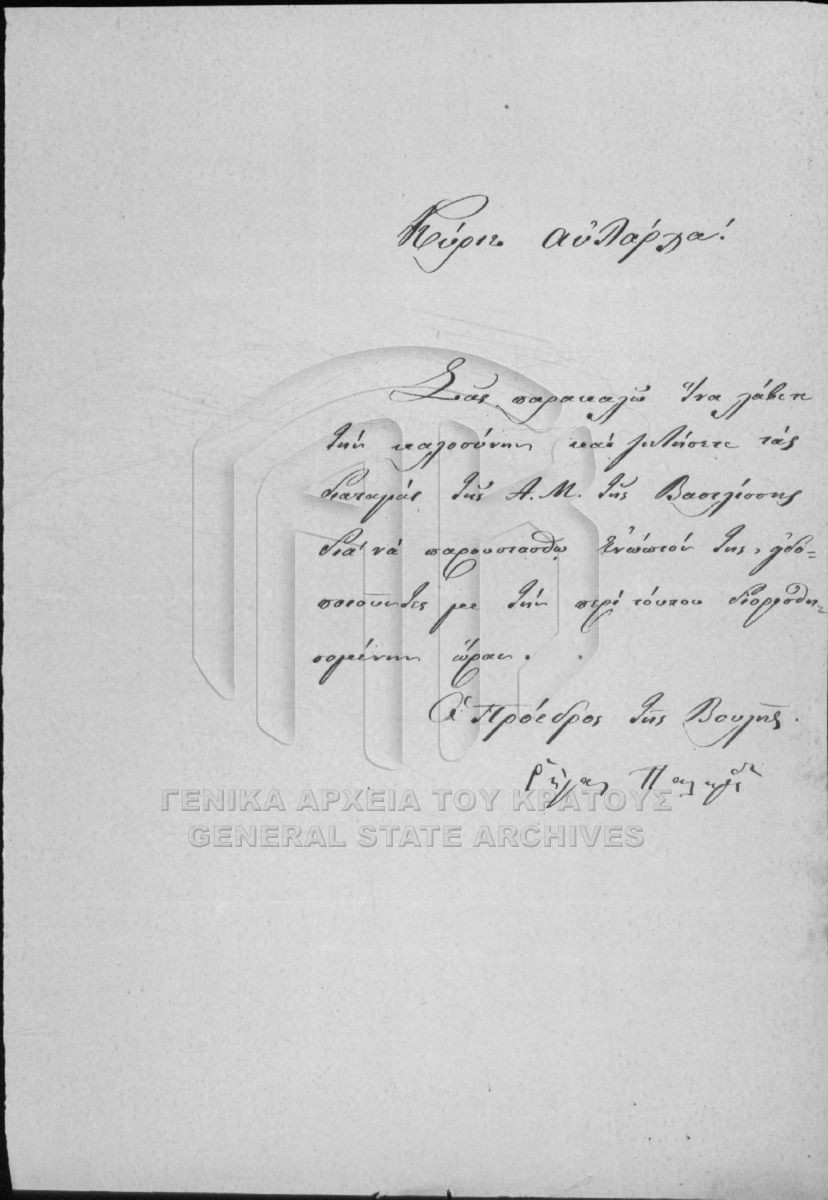 Κύριε αὐλάρχα!
Σᾶς παρακαλῶ ἵνα λάβετε
τὴν καλοσύνην καὶ ζητήσετε τὰς
διαταγάς τῆς Α. Μ. τῆς Βασιλίσσης
διὰ νὰ παρουσιασθῶ ἐνώπιόν της,
ποιοῦντες με τὴν περὶ τούτου
σομένην ὥραν.
Ὁ Πρόεδρος τῆς Βουλῆς.
Ῥήγας
ΓΕΝΙΚΑ ΑΡΧΕΙΑ ΤΟΥ ΚΡΑΤΟΥΣ
GENERAL STATE ARCHIVES